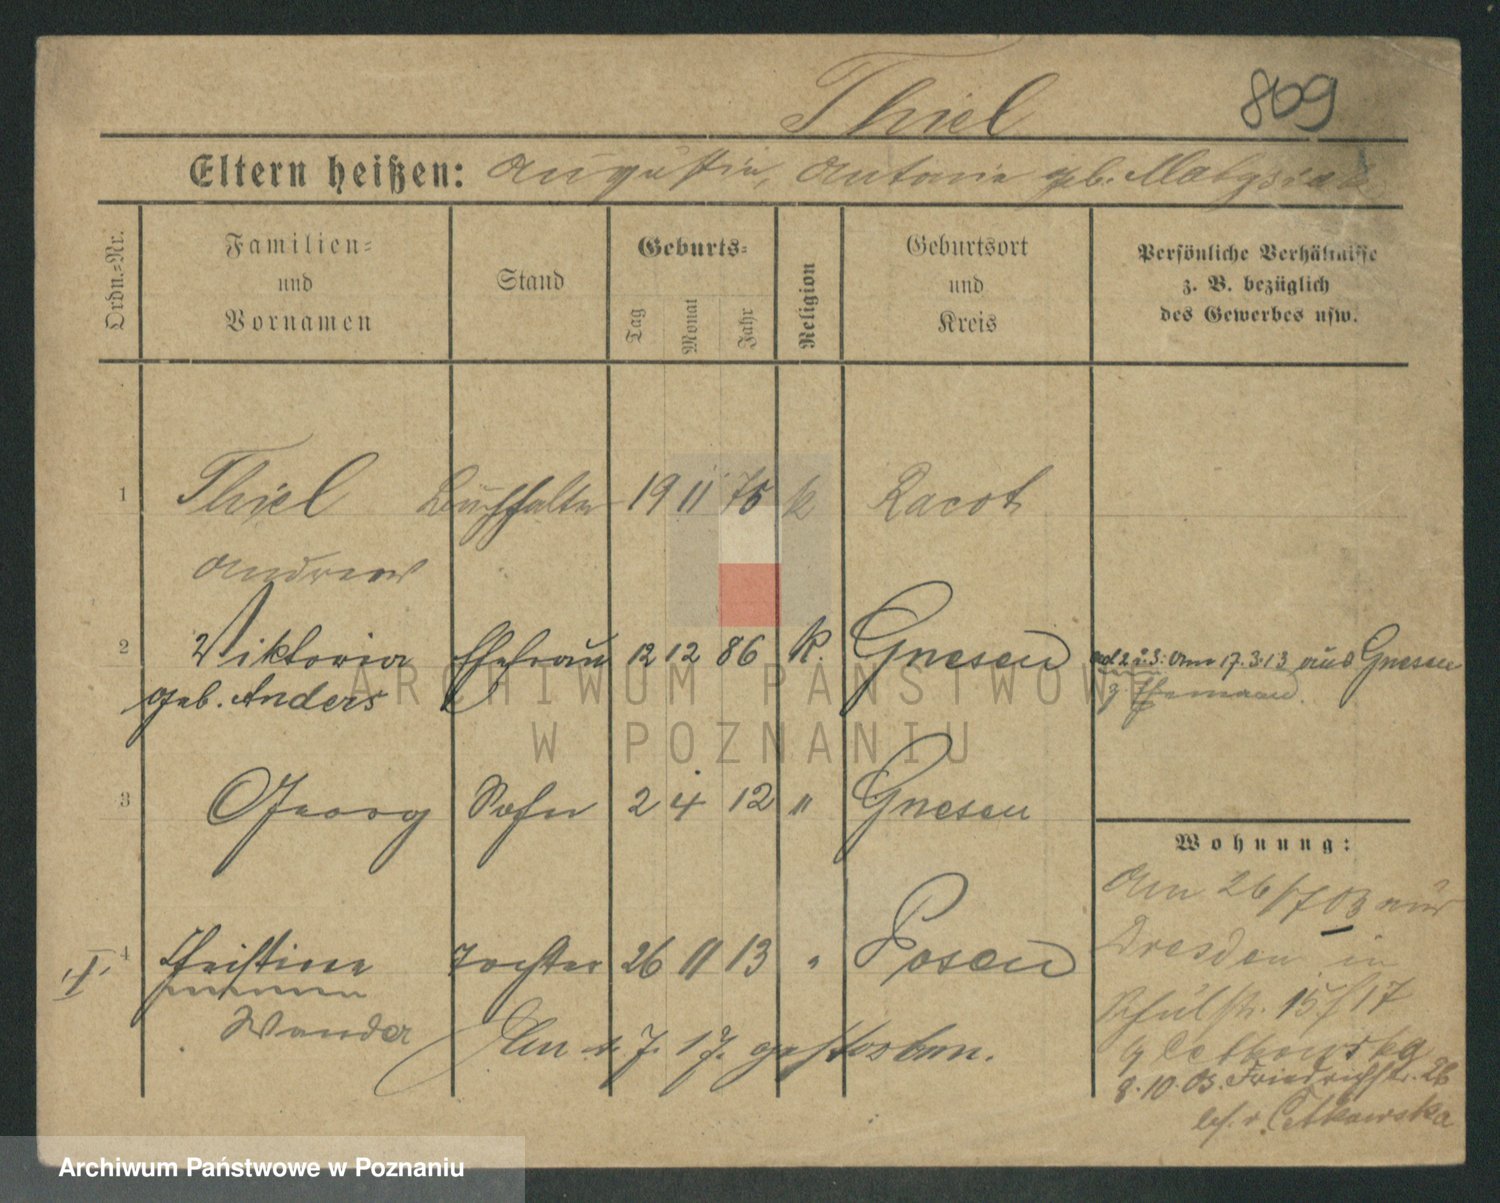 Thiel
809
Eltern heißen: Augustin, Antonie geb. Matysiak
Ordn.-Nr.
Familien-
und
Vornamen
Stand
Geburts-
Tag
Monat
Jahr
Religion
Geburtsort
und
Kreis
Persönliche Verhältnisse
z. B. bezüglich
des Gewerbes usw.
1 Thiel Buchhalter 19 11 75 k Racot
Andreas
2 Viktoria Ehefrau 12 12 86 k. Gnesen
geb. Anders
ad 2 u. 3. Am 17.3.13 aus Gnesen
z Ehemann.
3 Georg Sohn 2 4 12 " Gnesen
Wohnung:
4 Christine Tochter 26 11 13 " Posen
Wanda
7. 17. gestorben.
Am 26/7 03 aus
Dresden in
Schulstr. 15/17
Cetkowska
8.10.03. Friedrichstr. 26
bei v. Cetkowska
ARCHIWUM PAŃSTWOWE
W POZNANIU
Archiwum Państwowe w Poznaniu